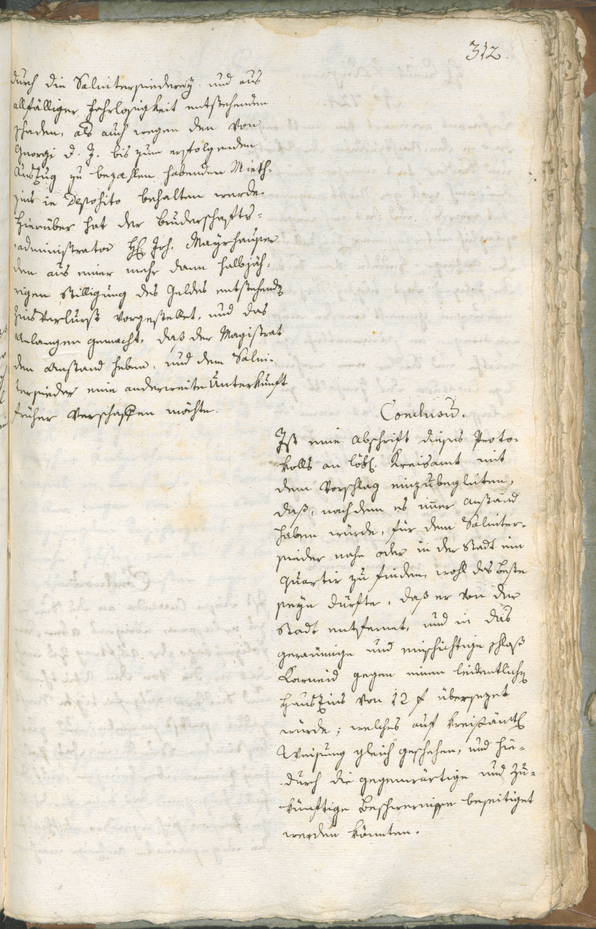 312.
durch die Saliterssiederey, und aus
allfälliger Fahrlosigkeit entstehenden
schaden, als auch wegen den von
Georgi d. J. bis zum erfolgenden
Auszug zu bezahlen habenden Mieth-
zins in Deposito behalten werde.
Hierüber hat der Bruderschafts-
administrator H. Joh. Mayrhauser
den aus einer mehr dann halbjäh-
rigen Stilligung des Geldes entstehende
Zins Verlurst vorgestellet, und das
Anlangen gemacht, daß der Magistrat
den Anstand heben, und dem Salni-
tersieder eine anderweite Unterkunft
früher verschaffen möchte.
Conclusum.
Ist eine Abschrift dieses Proto-
kolls an löbl. Kreisamt mit
dem Vorschlag einzubegleiten,
daß, nachdem es immer Anstand
haben würde, für dem Saliter-
sieder nahe oder in der Stadt ein
Quartir zu finden, wohl das Beste
seyn dürfte, daß er von der
Stadt entfernet, und in das
geraumige und einschichtige Schloß
Karneid gegen einen leidentlichen
Hauszins von 12 f übersezet
würde; welches auf kreisämtl.
Weisung gleich geschehen, und hie-
durch die gegenwärtige und zu-
künftige Beschwernisse beseitiget
werden könnten.